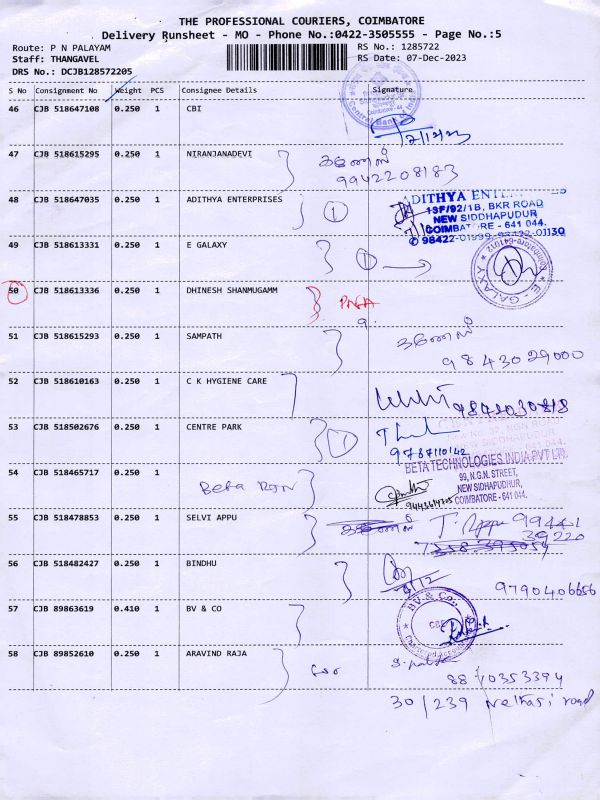 THE PROFESSIONAL COURIERS, COIMBATORE
Delivery Runsheet - MO - Phone No.:0422-3505555 - Page No.:5
Route: P N PALAYAM
Staff: THANGAVEL
DRS No.: DCJB128572205
RS No.: 1285722
RS Date: 07-Dec-2023
S No Consignment No Weight PCS Consignee Details Signature
46 CJB 518647108 0.250 1 CBI
Central Bank of
47 CJB 518615295 0.250 1 NIRANJANADEVI
9942208183
48 CJB 518647035 0.250 1 ADITHYA ENTERPRISES 1
ADITHYA
13F/92/1B, BKR ROAD
NEW SIDDHAPUDUR
COIMBATORE - 641 044.
49 CJB 518613331 0.250 1 E GALAXY 1
E - GALAXY
50 CJB 518613336 0.250 1 DHINESH SHANMUGAMM
51 CJB 518615293 0.250 1 SAMPATH
9843029000
52 CJB 518610163 0.250 1 C K HYGIENE CARE
53 CJB 518502676 0.250 1 CENTRE PARK 1
9787110142
BETA TECHNOLOGIES INDIA PVT LTD.
99, N.G.N. STREET,
NEW SIDHAPUDHUR,
COIMBATORE - 641 044.
54 CJB 518465717 0.250 1 Beta
55 CJB 518478853 0.250 1 SELVI APPU
T. Appu 99441
39220
56 CJB 518482427 0.250 1 BINDHU
9790406656
57 CJB 89863619 0.410 1 BV & CO
BV & Co.,
CBE
58 CJB 89852610 0.250 1 ARAVIND RAJA
8870353394
30/239 road